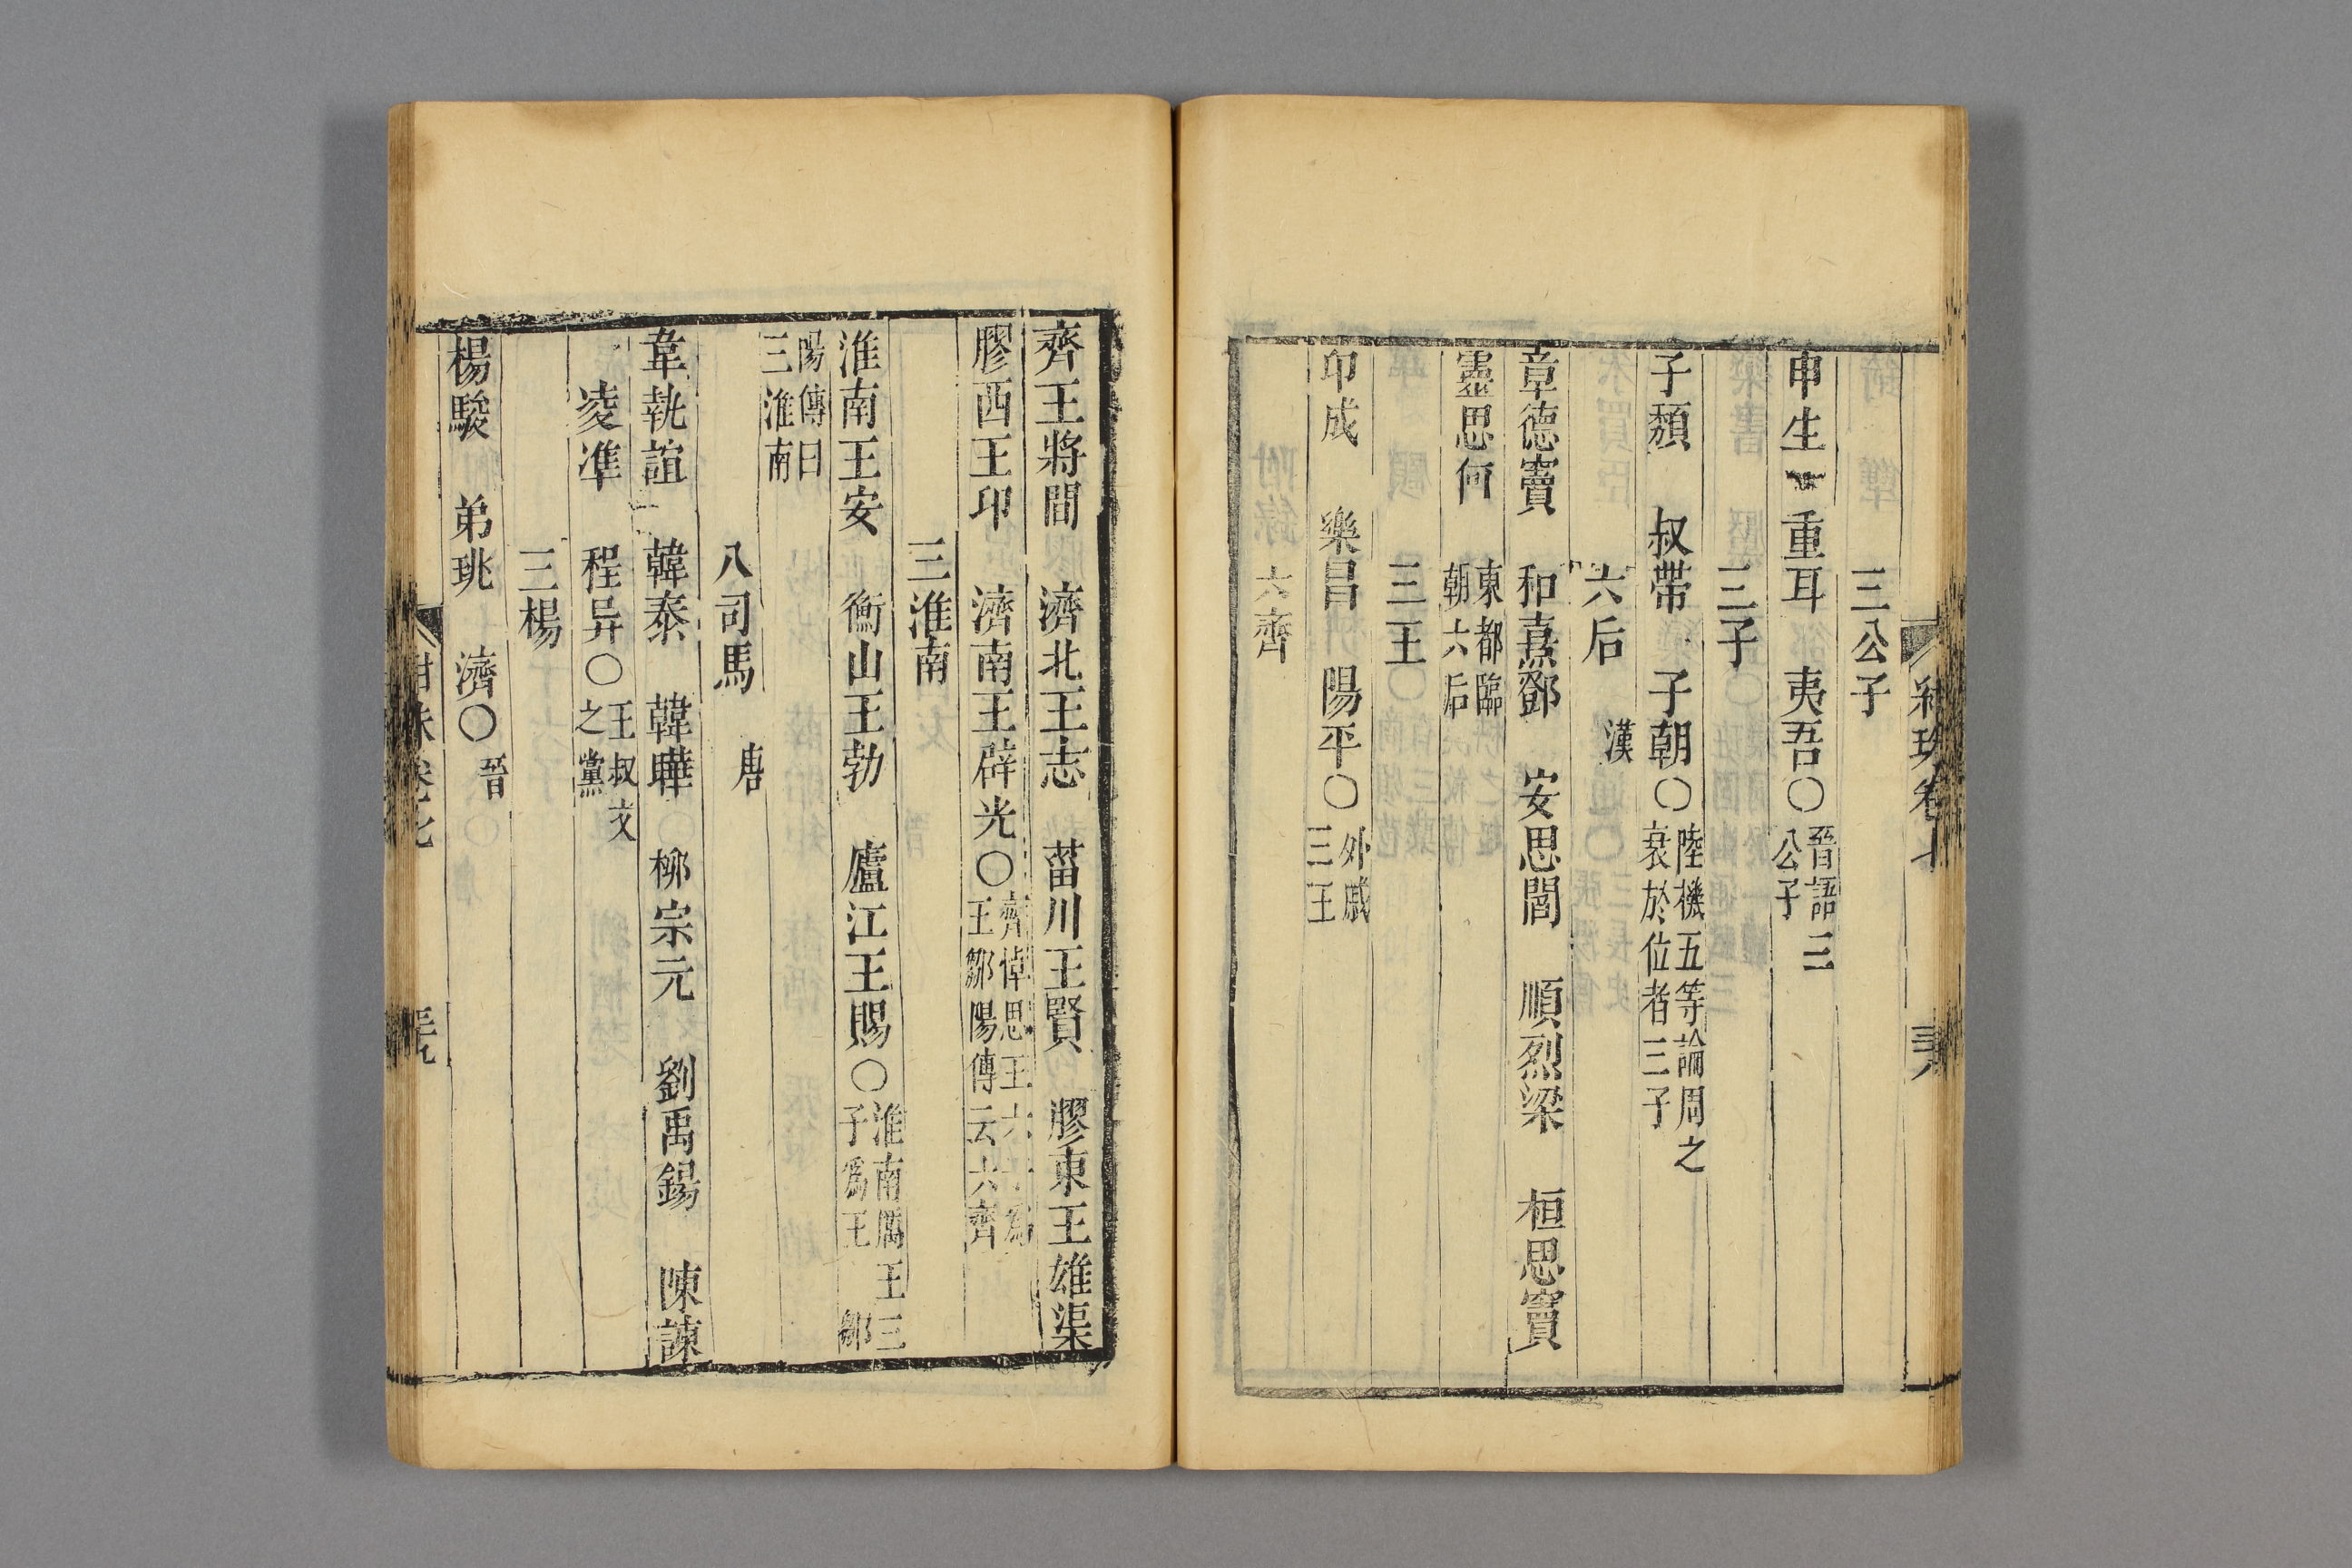 三公子
申生 重耳 夷吾〇晉語三公子
三子
子頹 叔帶 子朝〇陸機五等論周之衰於位者三子
六后 漢
章德竇 和熹鄧 安思閻 順烈梁 桓思竇
靈思何 東都臨朝六后
三王
印成 樂昌 陽平〇外戚三王
六齊
齊王將閭 濟北王志 菑川王賢 膠東王雄渠
膠西王印 濟南王辟光〇齊悼惠王六子為王鄒陽傳云六齊
三淮南
淮南王安 衡山王勃 廬江王賜〇淮南厲王三子為王 鄒
陽傳曰三淮南
八司馬 唐
韋執誼 韓泰 韓曄 柳宗元 劉禹錫 陳諫
凌準 程异〇王叔文之黨
三楊 晉
楊駿 弟珧 濟〇